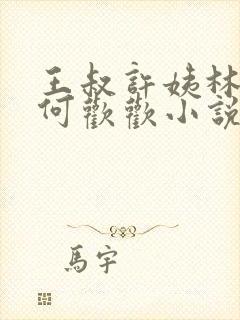 王叔許姨林
何歡歡小說
馬宇